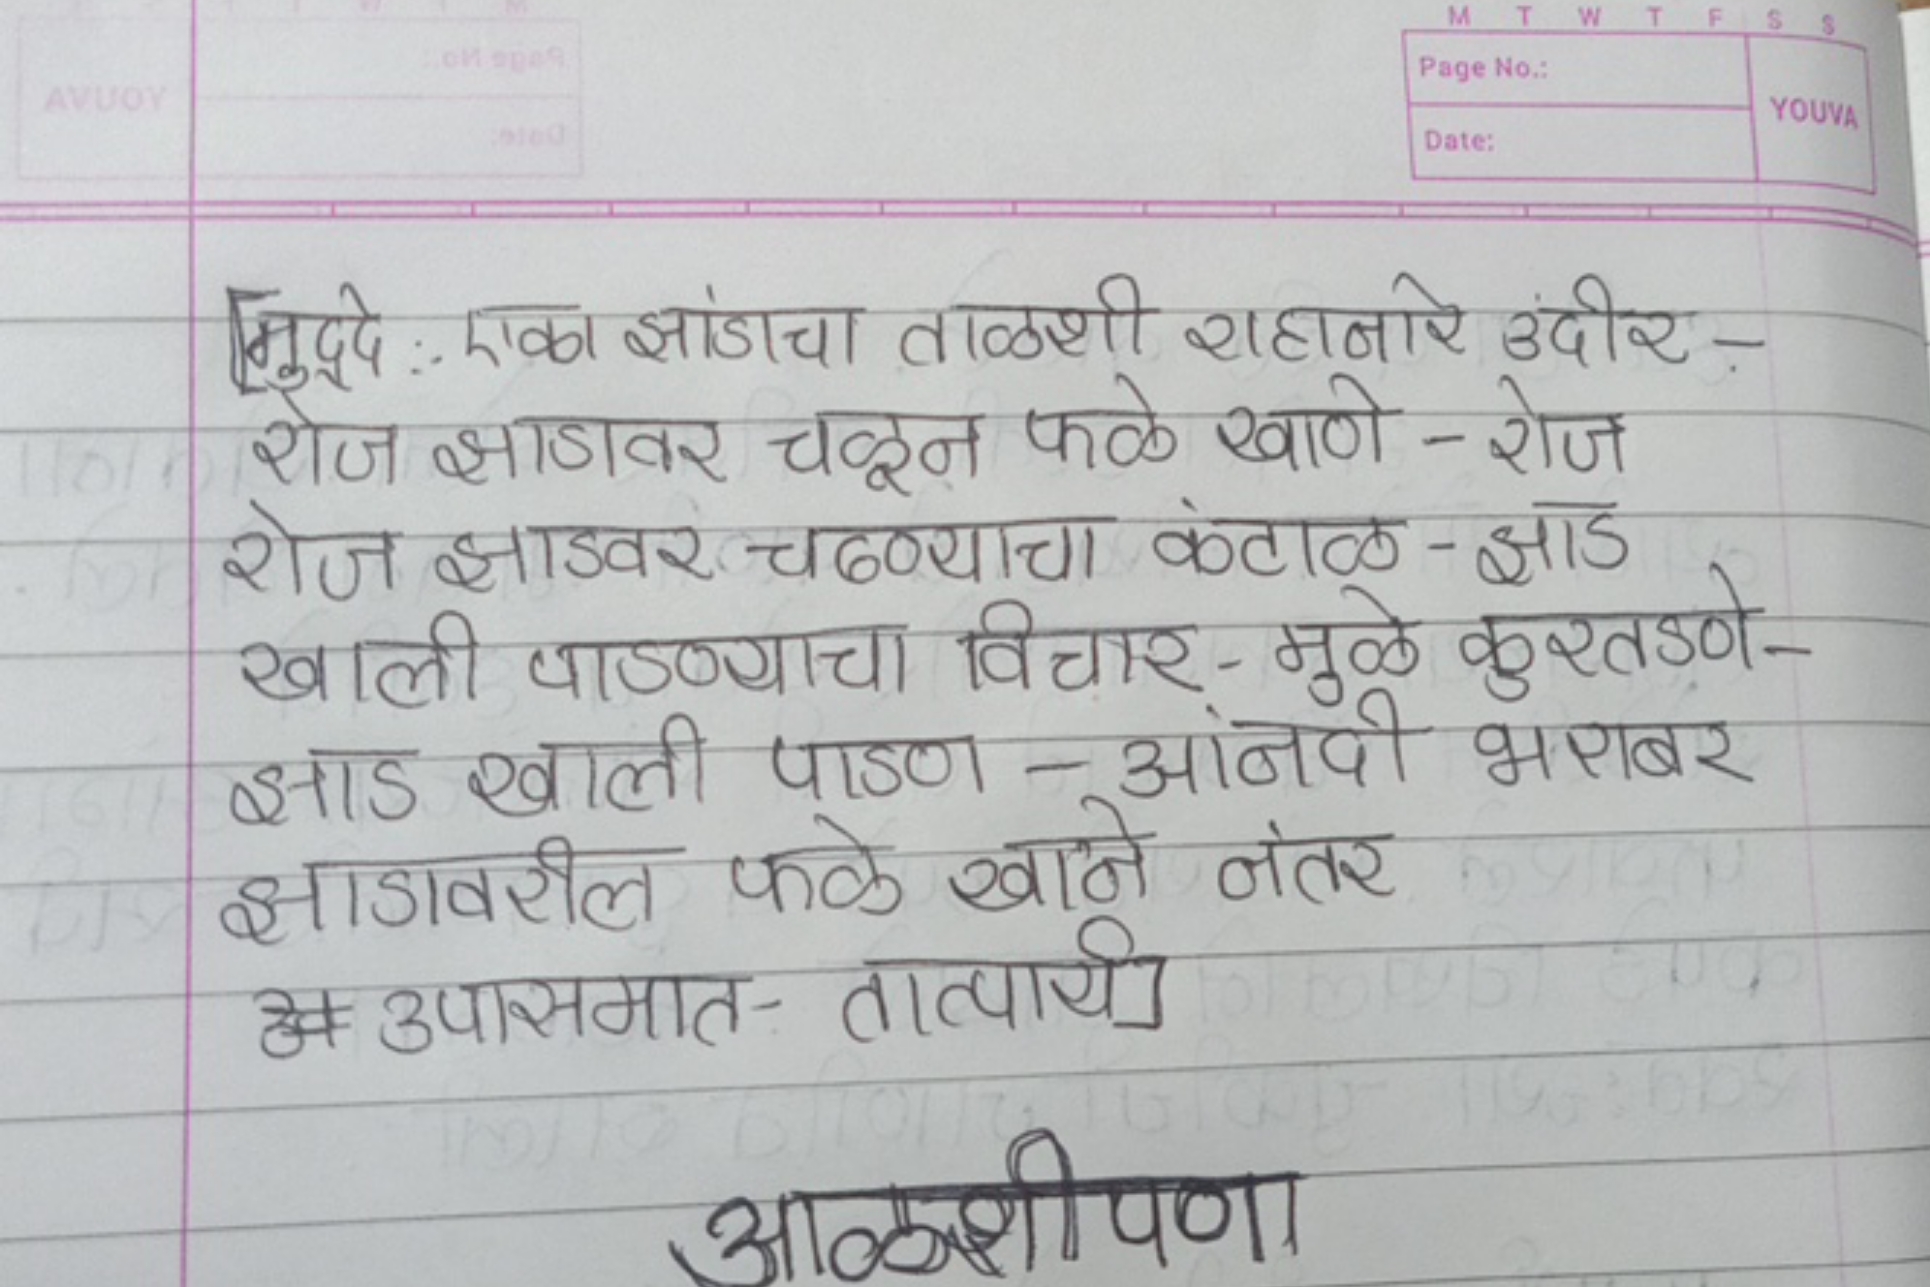 M T W T F S S
Page No.:
YOUVA
Date:
[मुद्दे :. एका झांडाचा ताळशी राहानारे उंदीर -
रोज झाडावर चळून फळे खाणे - रोज
रोज झाडवर चढण्याचा कंटाळ - झाड
खाली पाडण्याचा विचार - मुळे कुरतडणे -
झाड खाली पाडण - आंनदी भराबर
झाडावरील फळे खाने नंतर
उपासमात - तात्पार्य]
आळशीपणा